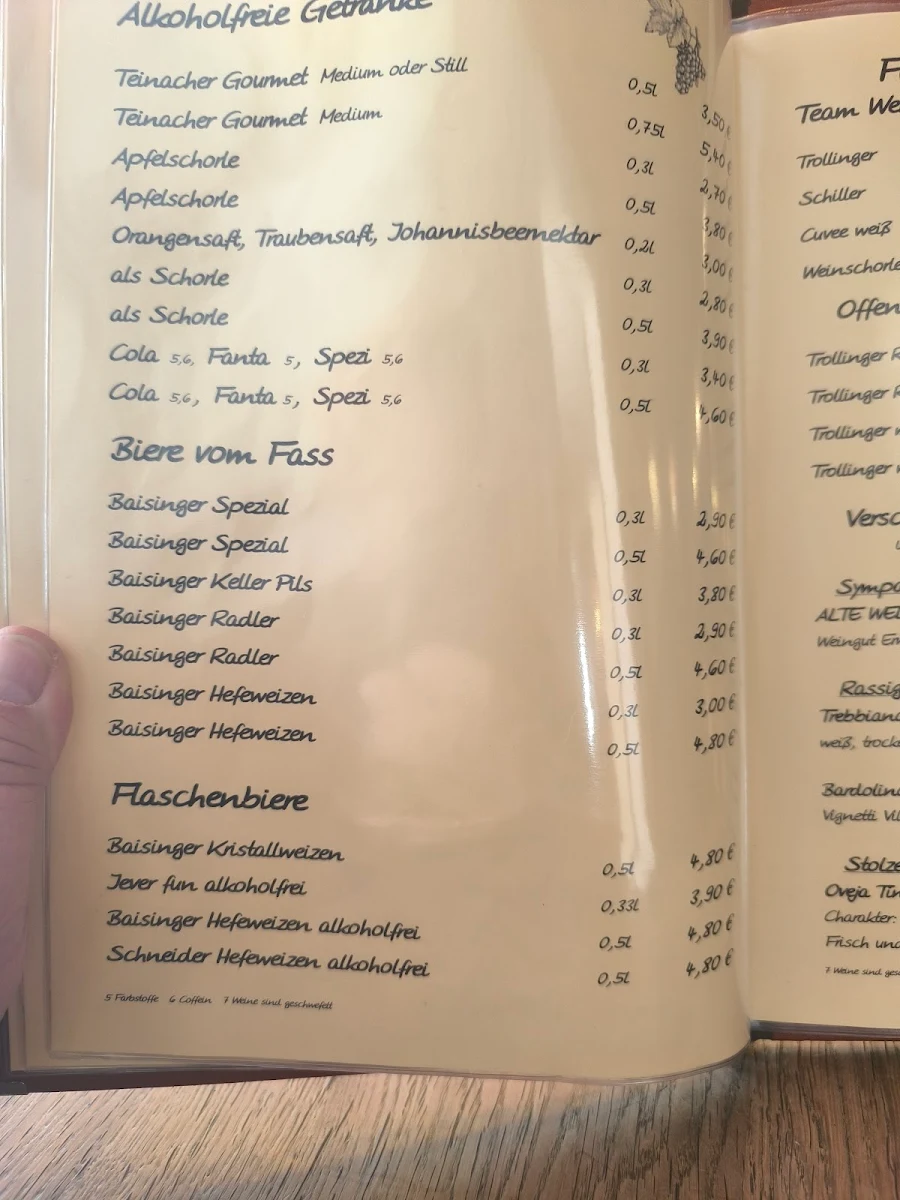 Alkoholfreie Getränke
Teinacher Gourmet Medium oder Still 0,5l 3,50 €
Teinacher Gourmet Medium 0,75l 5,40 €
Apfelschorle 0,3l 2,70 €
Apfelschorle 0,5l 3,80 €
Orangensaft, Traubensaft, Johannisbeernektar 0,2l 3,00 €
als Schorle 0,3l 2,80 €
als Schorle 0,5l 3,90 €
Cola 5,6, Fanta 5, Spezi 5,6 0,3l 3,40 €
Cola 5,6, Fanta 5, Spezi 5,6 0,5l 4,60 €
Biere vom Fass
Baisinger Spezial 0,3l 2,90 €
Baisinger Spezial 0,5l 4,60 €
Baisinger Keller Pils 0,3l 3,80 €
Baisinger Radler 0,3l 2,90 €
Baisinger Radler 0,5l 4,60 €
Baisinger Hefeweizen 0,3l 3,00 €
Baisinger Hefeweizen 0,5l 4,80 €
Flaschenbiere
Baisinger Kristallweizen 0,5l 4,80 €
Jever fun alkoholfrei 0,33l 3,90 €
Baisinger Hefeweizen alkoholfrei 0,5l 4,80 €
Schneider Hefeweizen alkoholfrei 0,5l 4,80 €
5 Farbstoffe 6 Coffein 7 Weine sind geschwefelt
Team We
Trollinger
Schiller
Cuvee weiß
Weinschorle
Offen
Trollinger R
Trollinger R
Trollinger
Trollinger
Versc
Sympa
ALTE WEI
Weingut
Rassig
Trebbiano
weiß, trock
Bardolino
Vignetti Vil
Stolze
Oveja Tin
Charakter:
Frisch und
7 Weine sind gesc